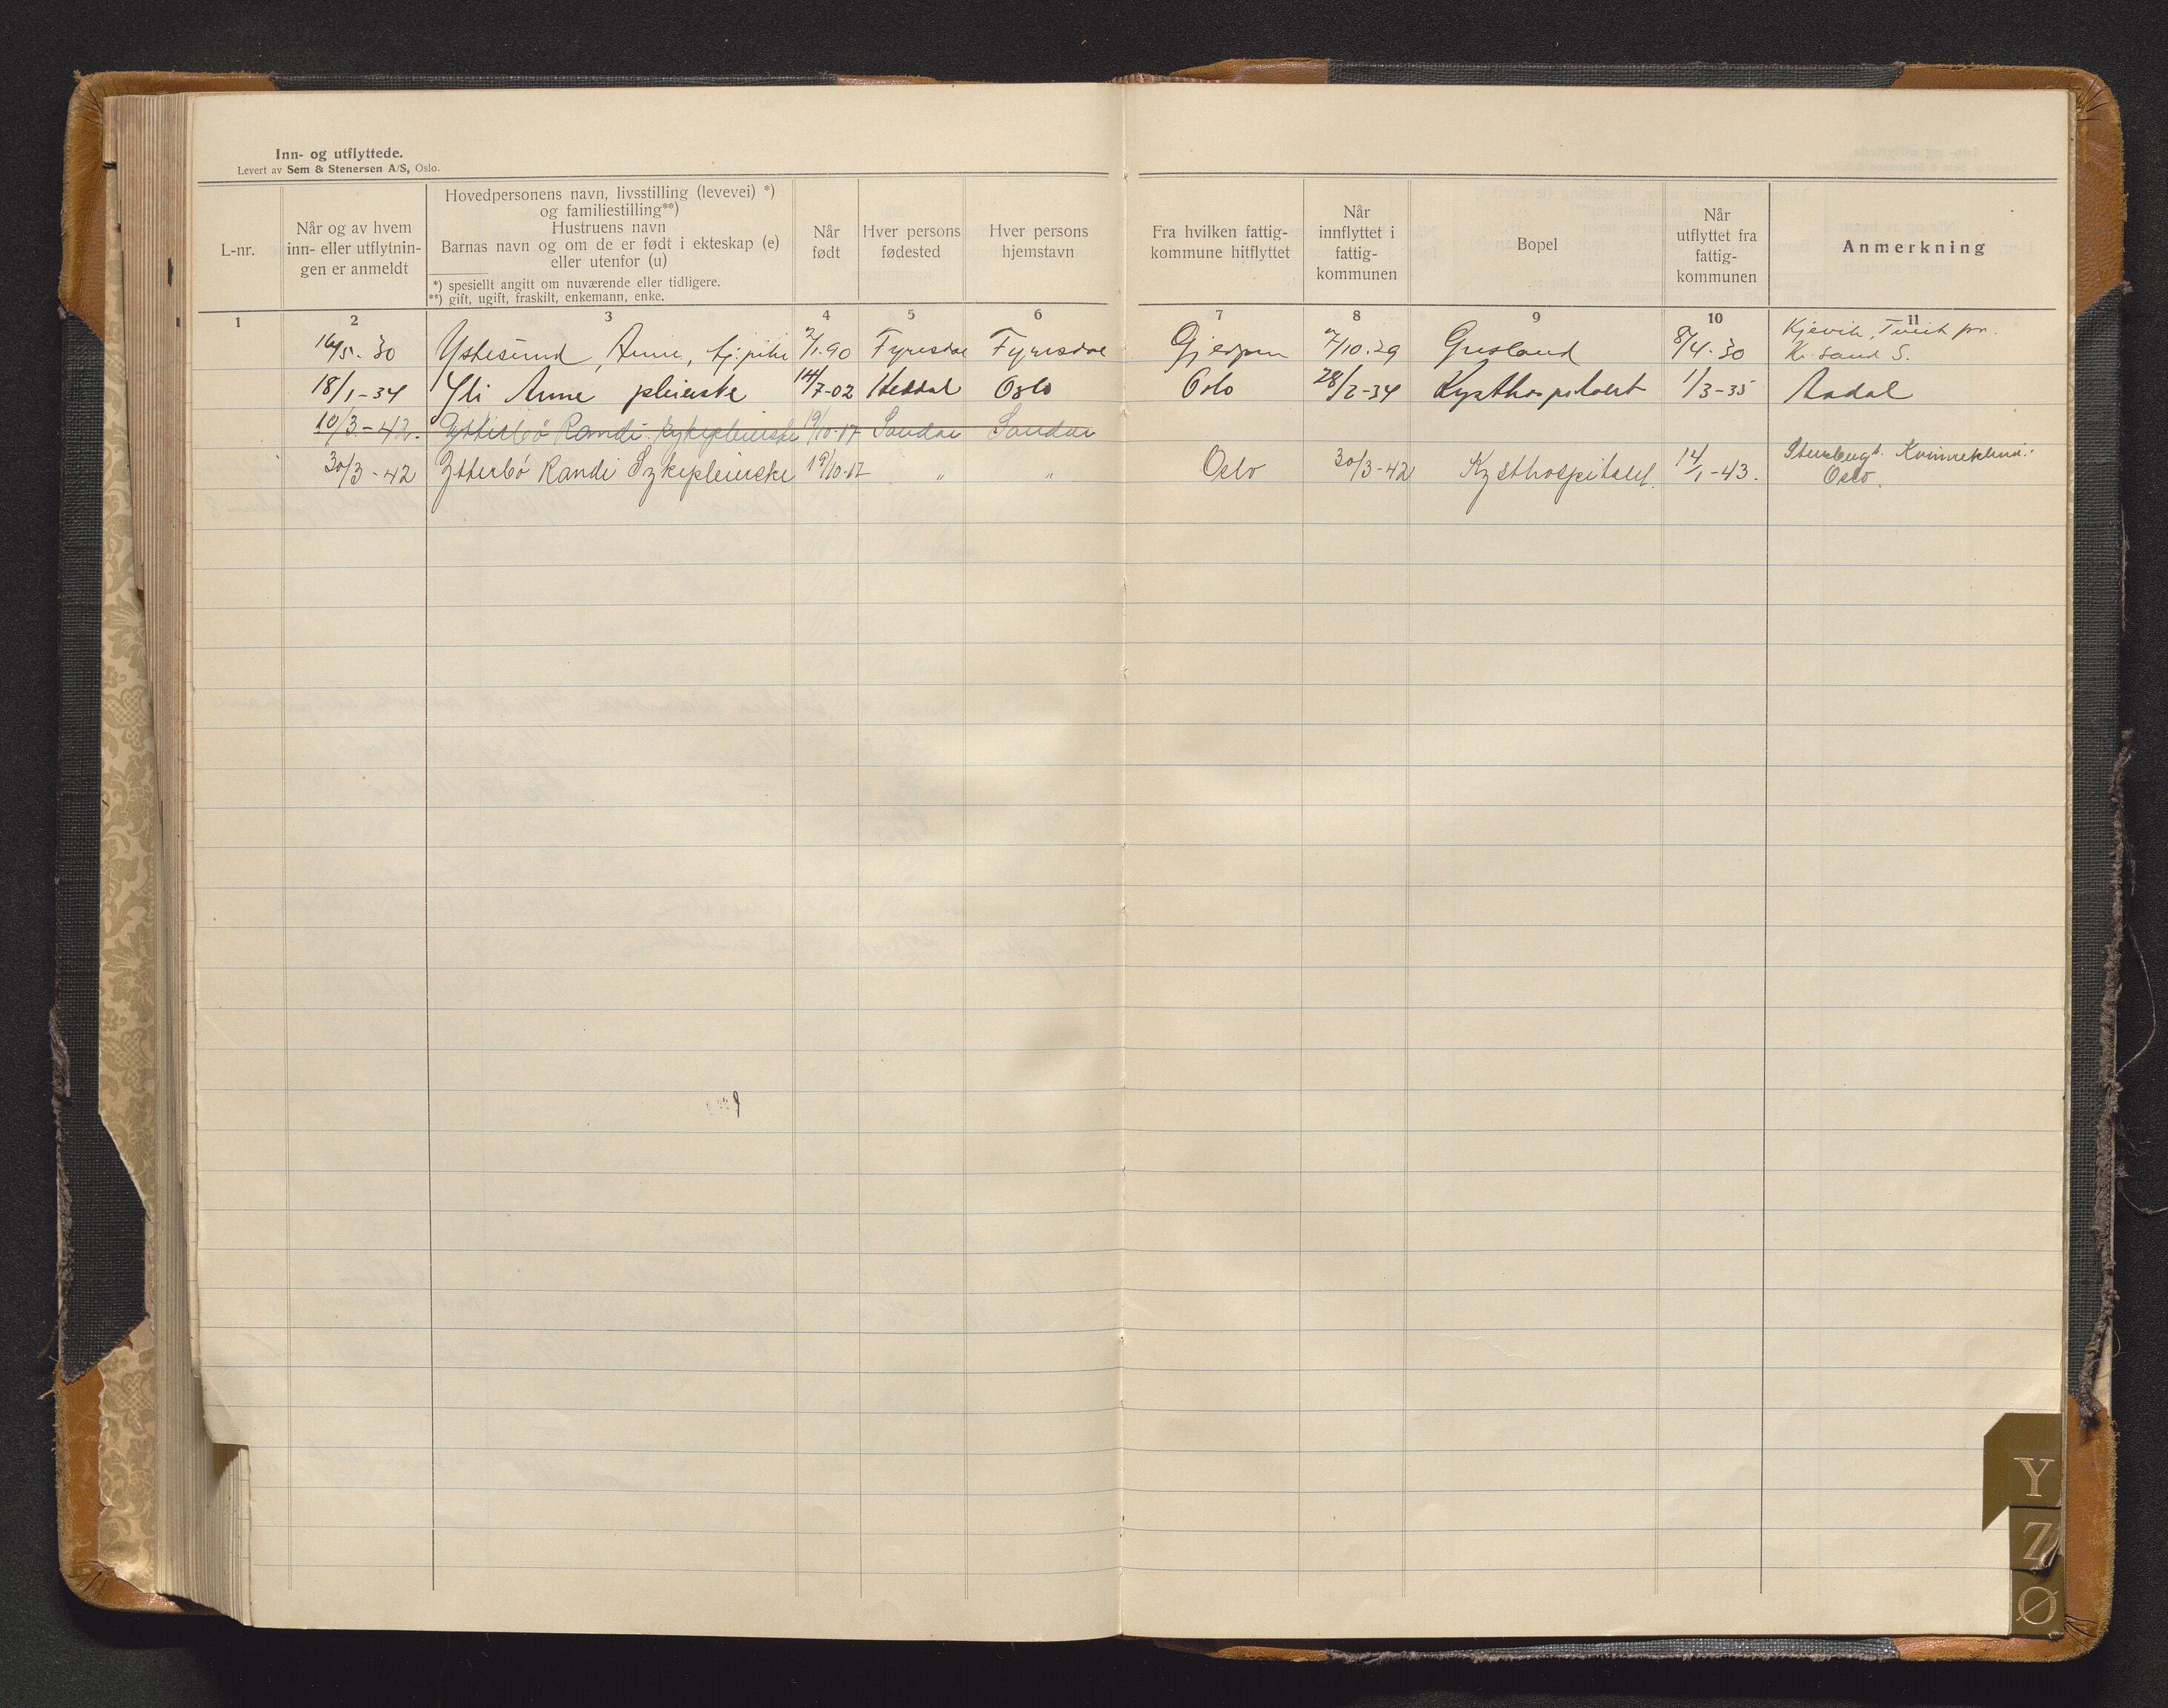 Inn- og utflyttede.
Levert av Sem & Stenersen A/S, Oslo.
L-nr.
Når og av hvem
inn- eller utflytnin-
gen er anmeldt
Hovedpersonens navn, livsstilling (levevei) *)
og familiestilling**)
Hustruens navn
Barnas navn og om de er født i ekteskap (e)
eller utenfor (u)
*) spesiellt angitt om nuværende eller tidligere.
**) gift, ugift, fraskilt, enkemann, enke.
Når
født
Hver persons
fødested
Hver persons
hjemstavn
Fra hvilken fattig-
kommune hitflyttet
Når
innflyttet i
fattig-
kommunen
Bopel
Når
utflyttet fra
fattig-
kommunen
Anmerkning
1 2 3 4 5 6 7 8 9 10 11
16/5-30 Ystesund, Anne, tj:pike 2/1.90 Fyresdal Fyresdal Gjerpen 7/10.29 Grosland 8/4.30 Kjevik, Tveit pr.
Kr.sand S.
18/1-34 Yli Anne pleierske 14/7-02 Heddal Oslo Oslo 28/2-34 Kysthospitalet 1/3-35 Aadal
10/3-42. Ytterbö Randi sykepleierske 19/10-17 Sandar Sandar
30/3-42 Ytterbö Randi Sykepleierske 19/10-17 " " Oslo 30/3-42 Kysthospitalet. 14/1-43. Kvinneklinik
Oslo.
Y
Z
Ø